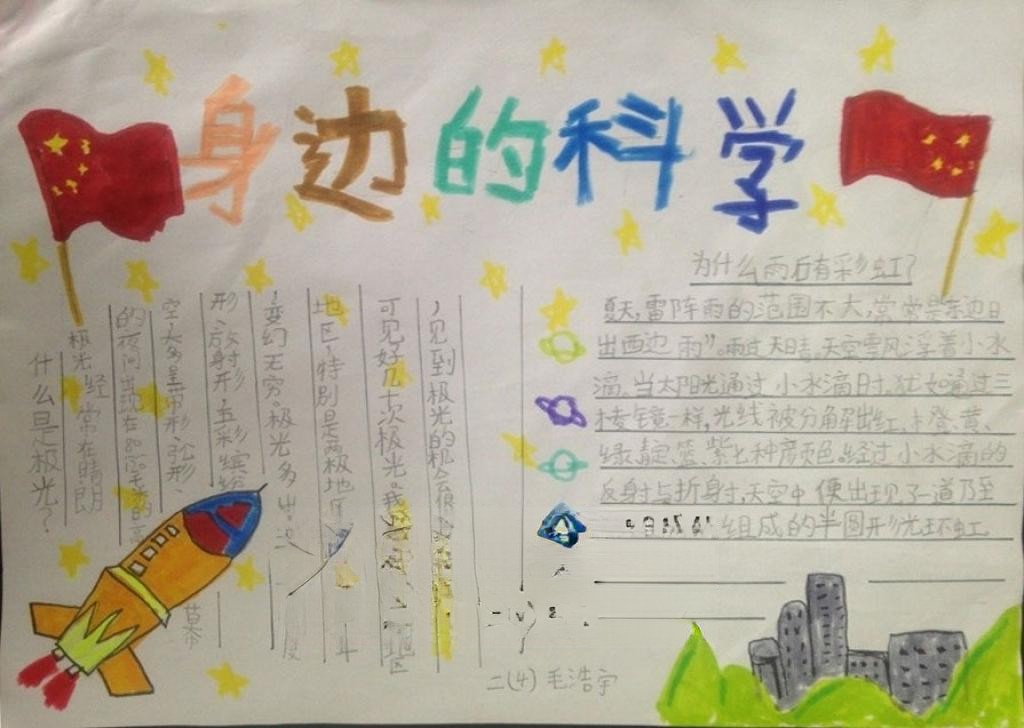 身边的科学
为什么雨后有彩虹?
夏天,雷阵雨的范围不大,常常是东边日
出西边雨”。雨过天晴,天空飘浮着小水
滴,当太阳光通过小水滴时,犹如通过三
棱镜一样,光线被分解出红、橙、黄、
绿、靛、篮、紫七种颜色。经过小水滴的
反射与折射,天空中便出现了一道乃至
组成的半圆形光环虹
什么是极光?
极光经常在晴朗
的夜间出现在
空,大多呈带形、弧形、
形、放射形,五彩缤纷
变幻无穷。极光多出
地区,特别是两极地区
可见好几十次极光。我
见到极光的机会很
二(4) 毛浩宇